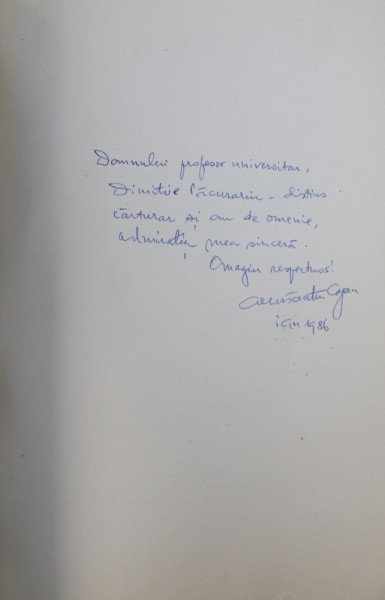 Domnului profesor universitar,
Dimitrie Păcurariu - distins
cărturar și om de omenie,
admirația mea sinceră.
Omagiu respectuos!
Constantin
1986